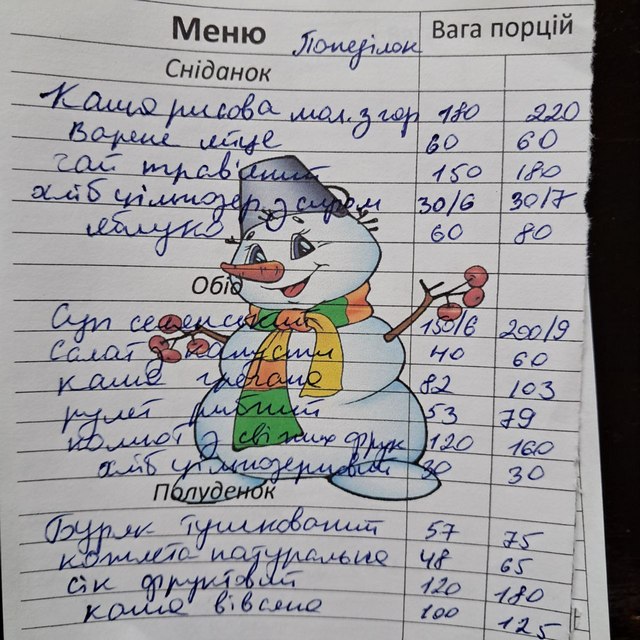 Меню Понеділок Вага порцій
Сніданок
Каша рисова мол. з гор 180 220
Варене яйце 60 60
Чай трав'яний 150 180
хліб цільнозер з сиром 30/6 30/7
яблуко 60 80
Обід
Суп селянський 150/6 200/9
Салат з капусти 40 60
каша гречана 82 103
рулет рибний 53 79
компот з свіжих фрук 120 160
хліб цільнозерновий 30 30
Полуденок
Буряк тушкований 57 75
котлета натуральна 48 65
сік фруктовий 120 180
каша вівсяна 100 125